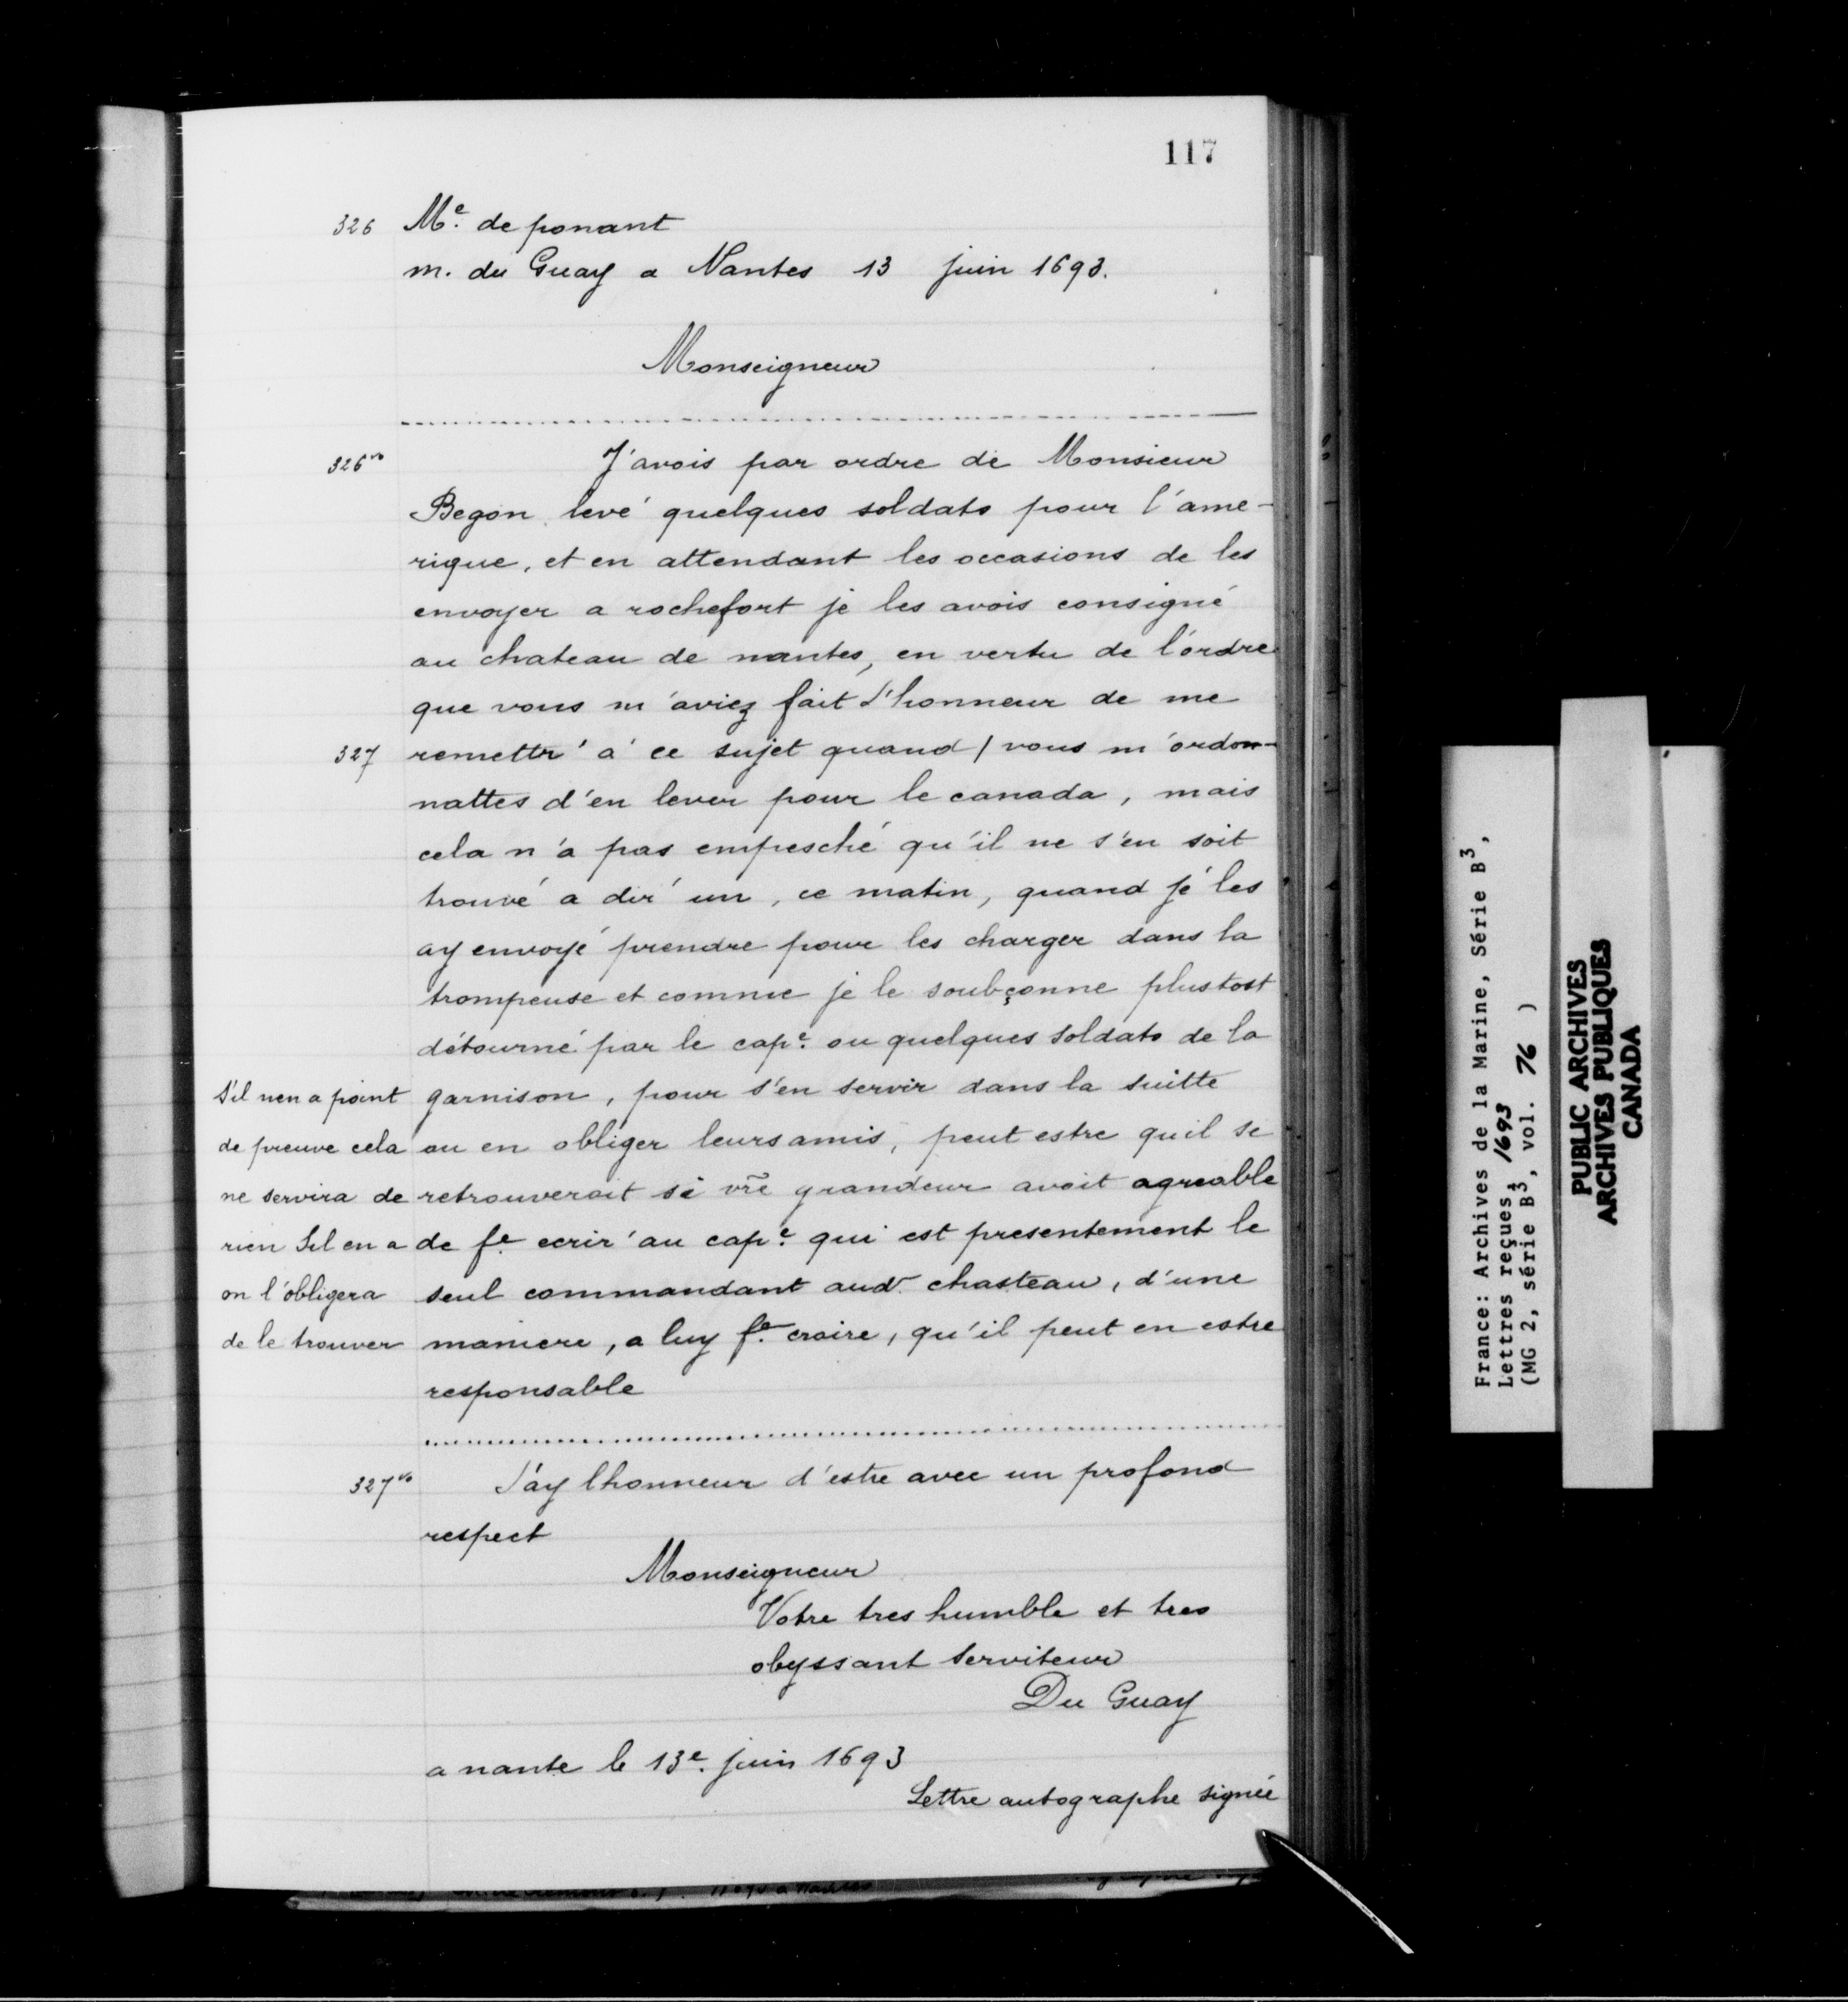 117
326 Me. de ponant
m. du Guay a Nantes 13 juin 1693.
Monseigneur
326vo J'avois par ordre de Monsieur
Begon levé quelques soldats pour l'ame-
rique, et en attendant les occasions de les
envoyer a rochefort je les avois consigné
au chateau de nantes, en vertu de l'ordre
que vous m'aviez fait l'honneur de me
327 remettr' a' ce sujet quand / vous m'ordon-
nattes d'en lever pour le canada, mais
cela n'a pas empesché qu'il ne s'en soit
trouvé a dir' un, ce matin, quand je les
ay envoyé prendre pour les charger dans la
trompeuse et comme je le soubçonne plustost
détourné par le cape. ou quelques soldats de la
garnison, pour s'en servir dans la suitte
ou en obliger leurs amis, peut estre quil se
retrouveroit si vr̃e grandeur avoit agreable
de fe. ecrir' au cape. qui est presentement le
seul commandant audt. chasteau, d'une
maniere, a luy fe. croire, qu'il peut en estre
responsable
S'il nen a point
de preuve cela
ne servira de
rien Sil en a
on l'obligera
de le trouver
327vo J'ay lhonneur d'estre avec un profond
respect
Monseigneur
Votre tres humble et tres
obyssant serviteur
Du Guay
a nante le 13e. juin 1693
Lettre autographe signée
France: Archives de la Marine, Série B3,
Lettres reçues, 1693
(MG 2, série B3, vol. 76 )
PUBLIC ARCHIVES
ARCHIVES PUBLIQUES
CANADA